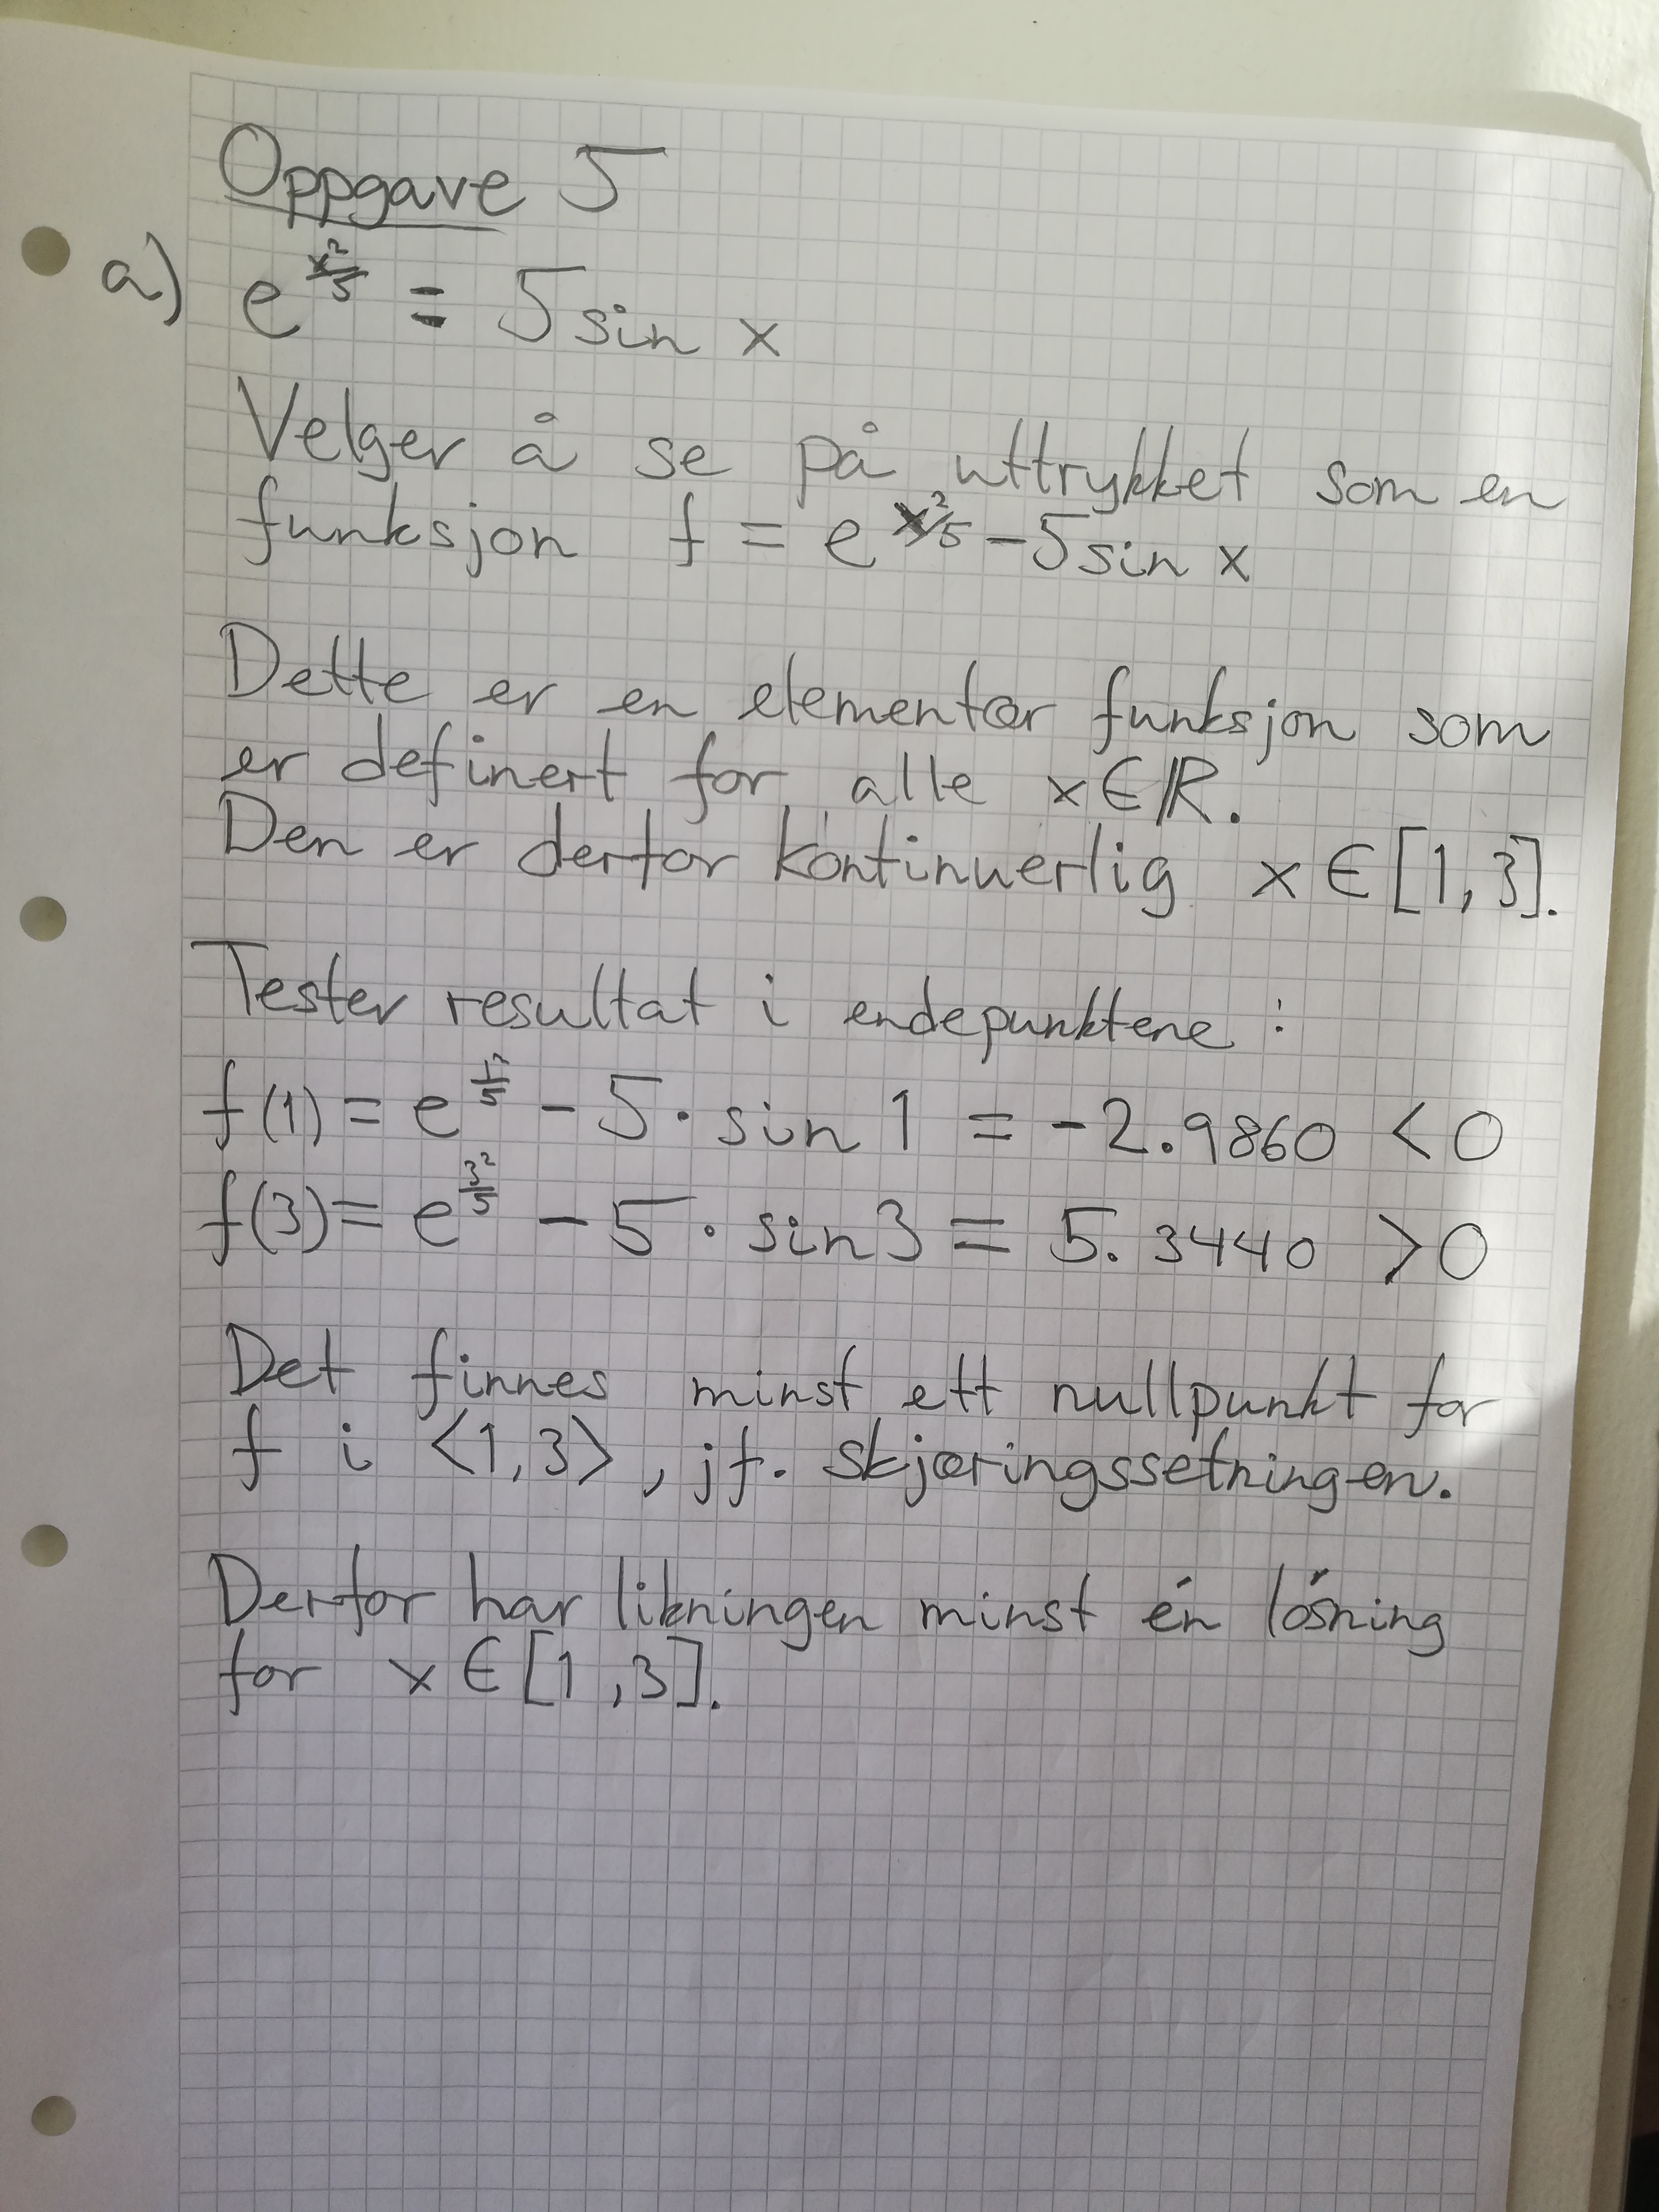 Oppgave 5
a) e^{x²/5} = 5 sin x
Velger å se på uttrykket som en
funksjon f = e^{x²/5} - 5 sin x
Dette er en elementær funksjon som
er definert for alle x ∈ ℝ.
Den er derfor kontinuerlig x ∈ [1, 3].
Tester resultat i endepunktene :
f(1) = e^{1²/5} - 5 · sin 1 = -2.9860 < 0
f(3) = e^{3²/5} - 5 · sin 3 = 5.3440 > 0
Det finnes minst ett nullpunkt for
f i ⟨1, 3⟩, jf. skjæringssetningen.
Derfor har likningen minst én løsning
for x ∈ [1, 3].